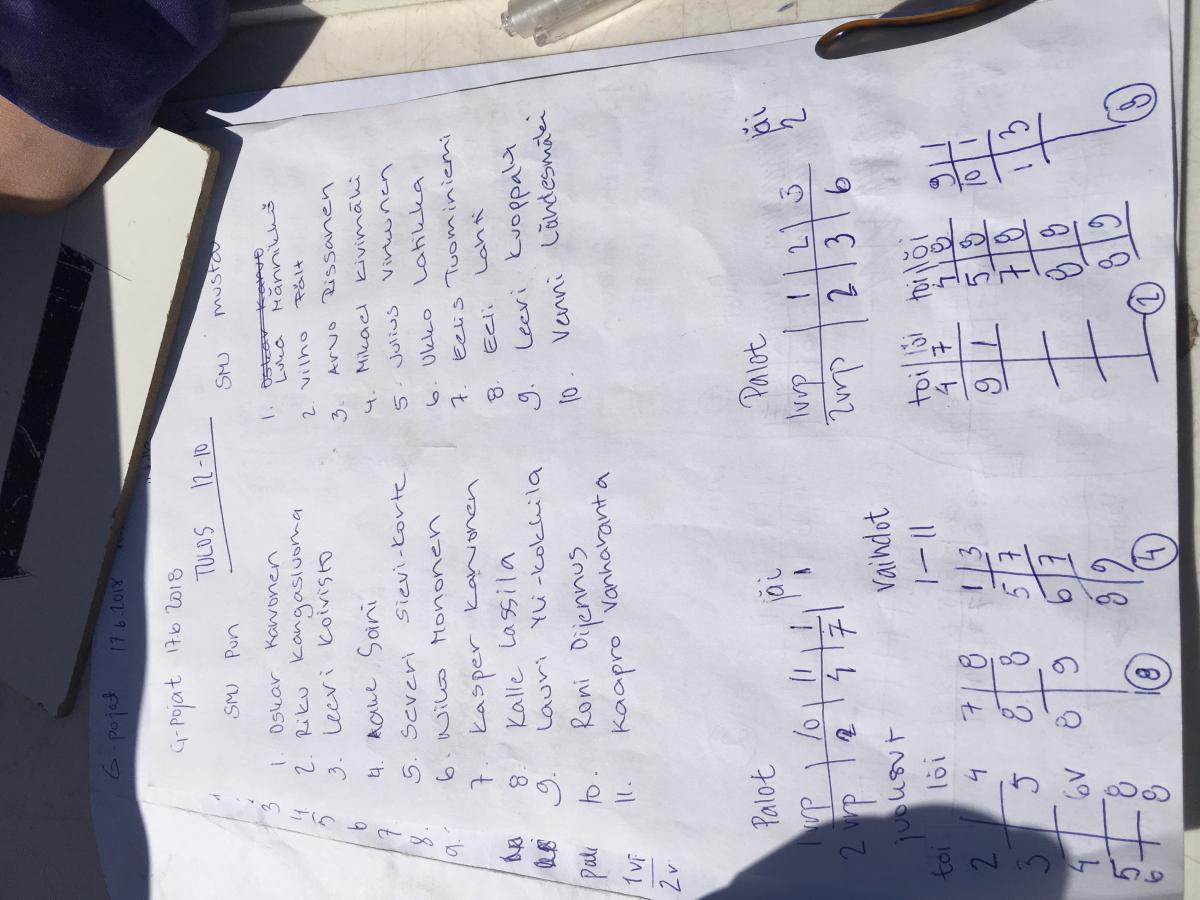 G-pojat 17.6.2018
G-Pojat 17.6 2018
TULOS 12-10
SMJ Pun
1. Oskar Karvonen
2. Riku Kangasluoma
3. Leevi Koivisto
4. Aake Soini
5. Severi Sievi-Korte
6. Niko Mononen
7. Kasper Karvonen
8. Kalle Lassila
9. Lauri Yli-Kokkila
10. Roni Dijennus
11. Kaapro Vanharanta
SMJ mustat
1. Oskar Karvo
Luka Männikkö
2. Vilho Pält
3. Arvo Rissanen
4. Mikael Kivimäki
5. Juius Virkunen
6. Ukko Latikka
7. Eelis Tuominiemi
8. Eeli Lahti
9. Leevi Kuoppala
10. Venni Lähdesmäki
3
4
5
6
7
8.
9.
1vi
2v
Palot jäi
1vrp 10 11 1 1
2vrp 2 4 7
Vaihdot
1-11
juoksut
toi löi
2 4
3 5
4 6V
5 8
6 8
7 8
8 8
8 9
8
1 3
5 7
6 7
8 9
4
Palot jäi
1vrp 1 2 3 2
2vrp 2 3 6
toi löi
4 7
9 1
2
toi löi
4 8
5 8
7 8
8 8
8 9
9 1
10 1
1 3